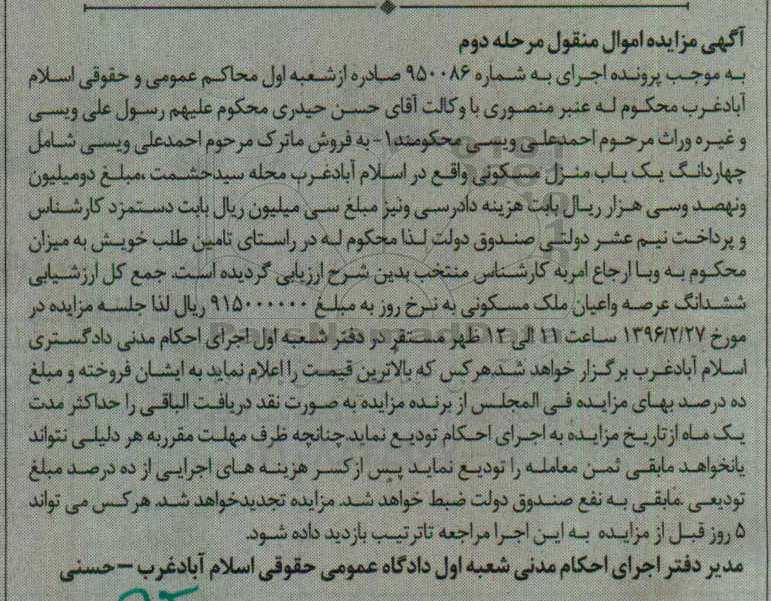 آگهی مزایده اموال منقول مرحله دوم
به موجب پرونده اجرای به شماره ۹۵۰۰۸۶ صادره ازشعبه اول محاکم عمومی و حقوقی اسلام
آبادغرب محکوم له عنبر منصوری با وکالت آقای حسن حیدری محکوم علیهم رسول علی ویسی
و غیره وراث مرحوم احمدعلی ویسی محکومند۱- به فروش ماترک مرحوم احمدعلی ویسی شامل
چهاردانگ یک باب منزل مسکونی واقع در اسلام آبادغرب محله سیدحشمت ،مبلغ دومیلیون
ونهصد وسی هزار ریال بابت هزینه دادرسی ونیز مبلغ سی میلیون ریال بابت دستمزد کارشناس
و پرداخت نیم عشر دولتی صندوق دولت لذا محکوم له در راستای تامین طلب خویش به میزان
محکوم به وبا ارجاع امربه کارشناس منتخب بدین شرح ارزیابی گردیده است. جمع کل ارزشیابی
ششدانگ عرصه واعیان ملک مسکونی به نرخ روز به مبلغ ۹۱۵۰۰۰۰۰۰ ریال لذا جلسه مزایده در
مورخ ۱۳۹۶/۲/۲۷ ساعت ۱۱ الی ۱۲ ظهر مستقر در دفتر شعبه اول اجرای احکام مدنی دادگستری
اسلام آبادغرب برگزار خواهد شد.هرکس که بالاترین قیمت را اعلام نماید به ایشان فروخته و مبلغ
ده درصد بهای مزایده فی المجلس از برنده مزایده به صورت نقد دریافت الباقی را حداکثر مدت
یک ماه ازتاریخ مزایده به اجرای احکام تودیع نماید.چنانچه ظرف مهلت مقرربه هر دلیلی نتواند
یانخواهد مابقی ثمن معامله را تودیع نماید پس ازکسر هزینه های اجرایی از ده درصد مبلغ
تودیعی .مابقی به نفع صندوق دولت ضبط خواهد شد. مزایده تجدیدخواهد شد. هرکس می تواند
۵ روز قبل از مزایده به این اجرا مراجعه تاترتیب بازدید داده شود.
مدیر دفتر اجرای احکام مدنی شعبه اول دادگاه عمومی حقوقی اسلام آبادغرب – حسنی